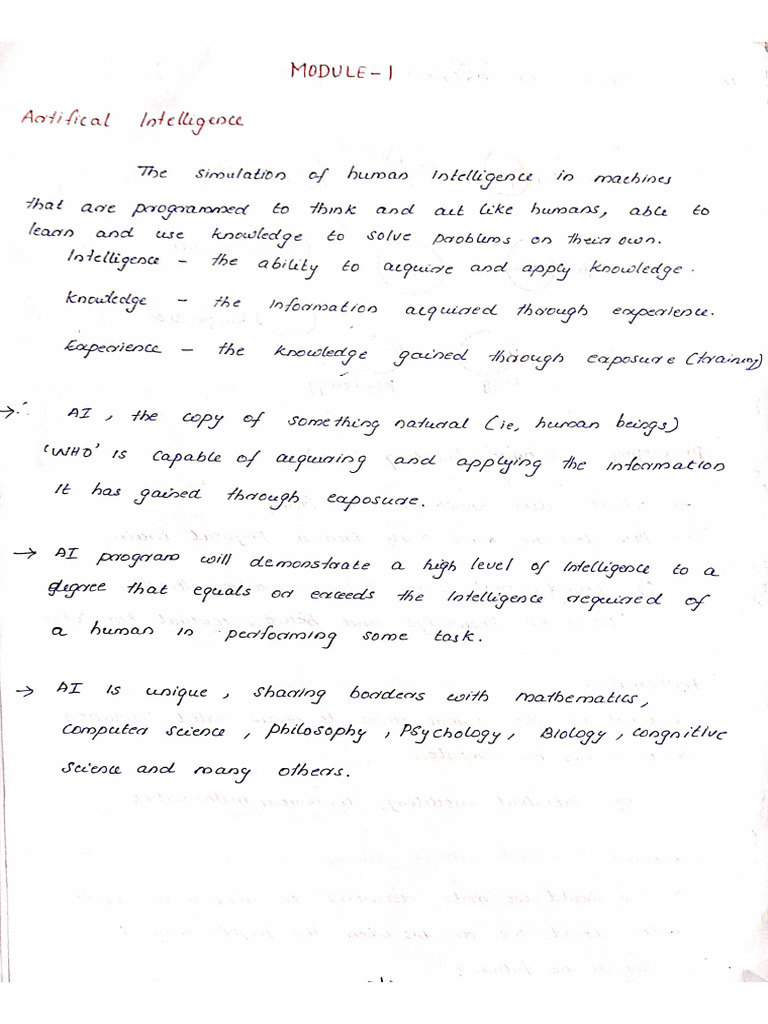 MODULE-1
Artifical Intelligence
The simulation of human intelligence in machines
that are programmed to think and act like humans, able to
learn and use knowledge to solve problems on their own.
Intelligence - the ability to acquire and apply knowledge.
Knowledge - the information acquired through experience.
Experience - the knowledge gained through exposure (training)
→ ∴ AI, the copy of something natural (ie, human beings)
'WHO' is capable of acquring and applying the information
it has gained through exposure.
→ AI program will demonstrate a high level of intelligence to a
degree that equals or exceeds the intelligence required of
a human in performing some task.
→ AI is unique, sharing borders with mathematics,
computer science, philosophy, Psychology, Biology, congnitive
science and many others.